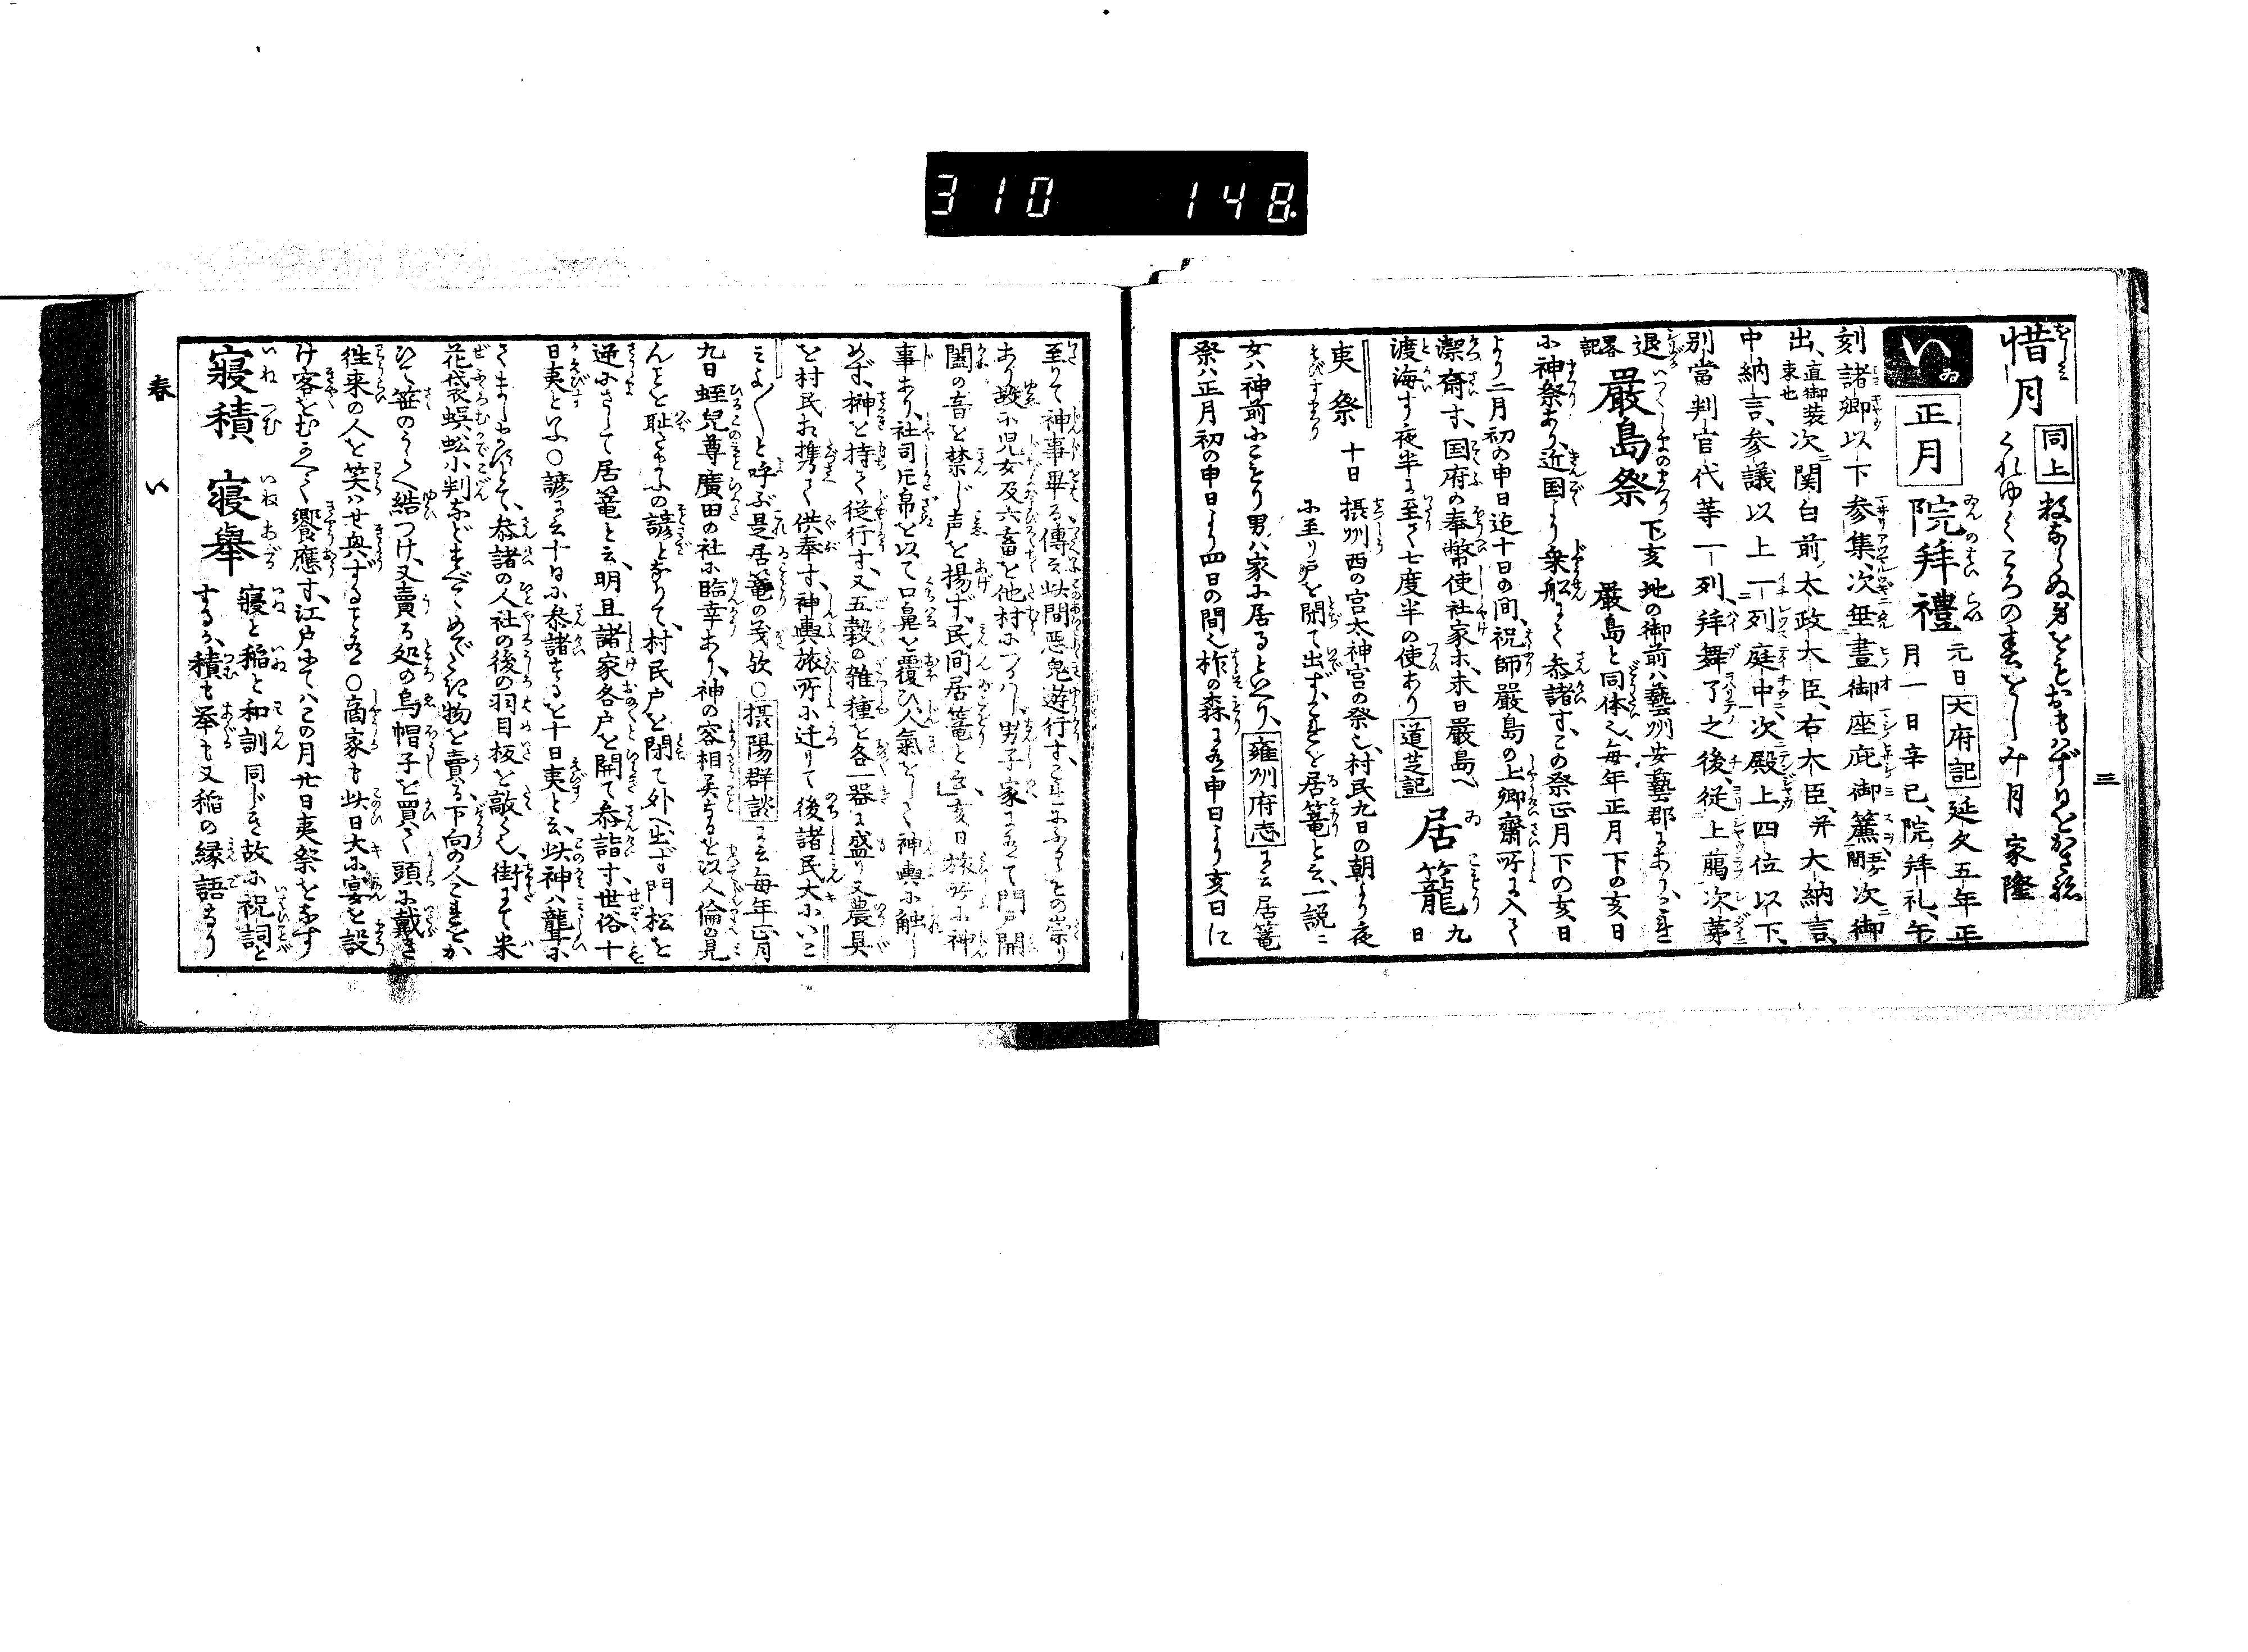 310 148.
三
惜月 同上 数ならぬ身をもおもはず日をかさね
くれゆくころの春をしみ月 家隆
い ゐ 正月 院拝禮 元日 天府記 延久五年正
月一日辛巳、院拝礼、午
刻諸卿以下参集、次垂晝御座庇御簾 次御
出、直御装束也 次関白前太政大臣、右大臣、并大納言、
中納言、参議以上一列庭中、次殿上四位以下、
別當判官代等一列、拝舞了之後、従上﨟次第
退 嚴島祭 下亥 地の御前ハ藝州安藝郡にあり、これ
畧記 嚴島と同体也、毎年正月下の亥、日
小神祭あり、近国より乗舩にて参諸す、この祭正月下の亥、日
より二月初の申日迄十日の間、祝師嚴島の上卿齋所に入て
潔齋す、国府の奉幣使社家ホ、未日嚴島へ 居籠 九
渡海す夜半に至て七度半の使あり 道芝記 日
夷祭 十日 摂州西の宮太神宮の祭也、村民九日の朝より夜
に至り戸を閉て出ず、これを居篭と云、一説ニ
女ハ神前にこもり男ハ家に居るといへり、雍州府志に云居篭
祭ハ正月初の申日より四日の間也柞の森に有申日より亥日に
至りて神事畢る傳云此間悪鬼遊行す、これにふるゝもの祟り
あり故に児女及六畜を他村につかハし男子家に有て門戸開
闔の音を禁じ声を揚ず、民間居篭と云、亥日旅所に神
事あり、社司片帛を以て口鼻を覆ひ人氣をして神輿に触し
めず、榊を持て従行す、又五穀の雑種を各一器に盛り又農具
を村民お携て供奉す、神輿旅所に迁りて後諸民大にいこ
ミよ〱と呼ぶ是居篭の義欤○摂陽群談に云毎年正月
九日蛭兒尊廣田の社に臨幸あり、神の容相異なるを以人倫の見
んことを耻たまふの諺となりて、村民戸を閉て外へ出ず門松を
逆にさして居篭と云、明旦諸家各戸を開て参詣す世俗十
日夷といふ○諺に云十日に参諸するを十日夷と云、此神ハ聾に
てましますとて、参諸の人社の後の羽目板を敲く也、街にて米
花袋蜈蚣小判などすべてめでたき物を賣る、下向の人これをか
ひて笹のうらへ結つけ、又賣る処の烏帽子を買て頭に戴き
徃来の人を笑ハせ興ずること有○商家も此日大に宴を設
け客をむかへて饗應す、江戸にてハこの月廿日夷祭をなす
寢積 寢舉 寢と稲と和訓同じき故に祝詞と
するか積も挙も又稲の縁語なり
春 い